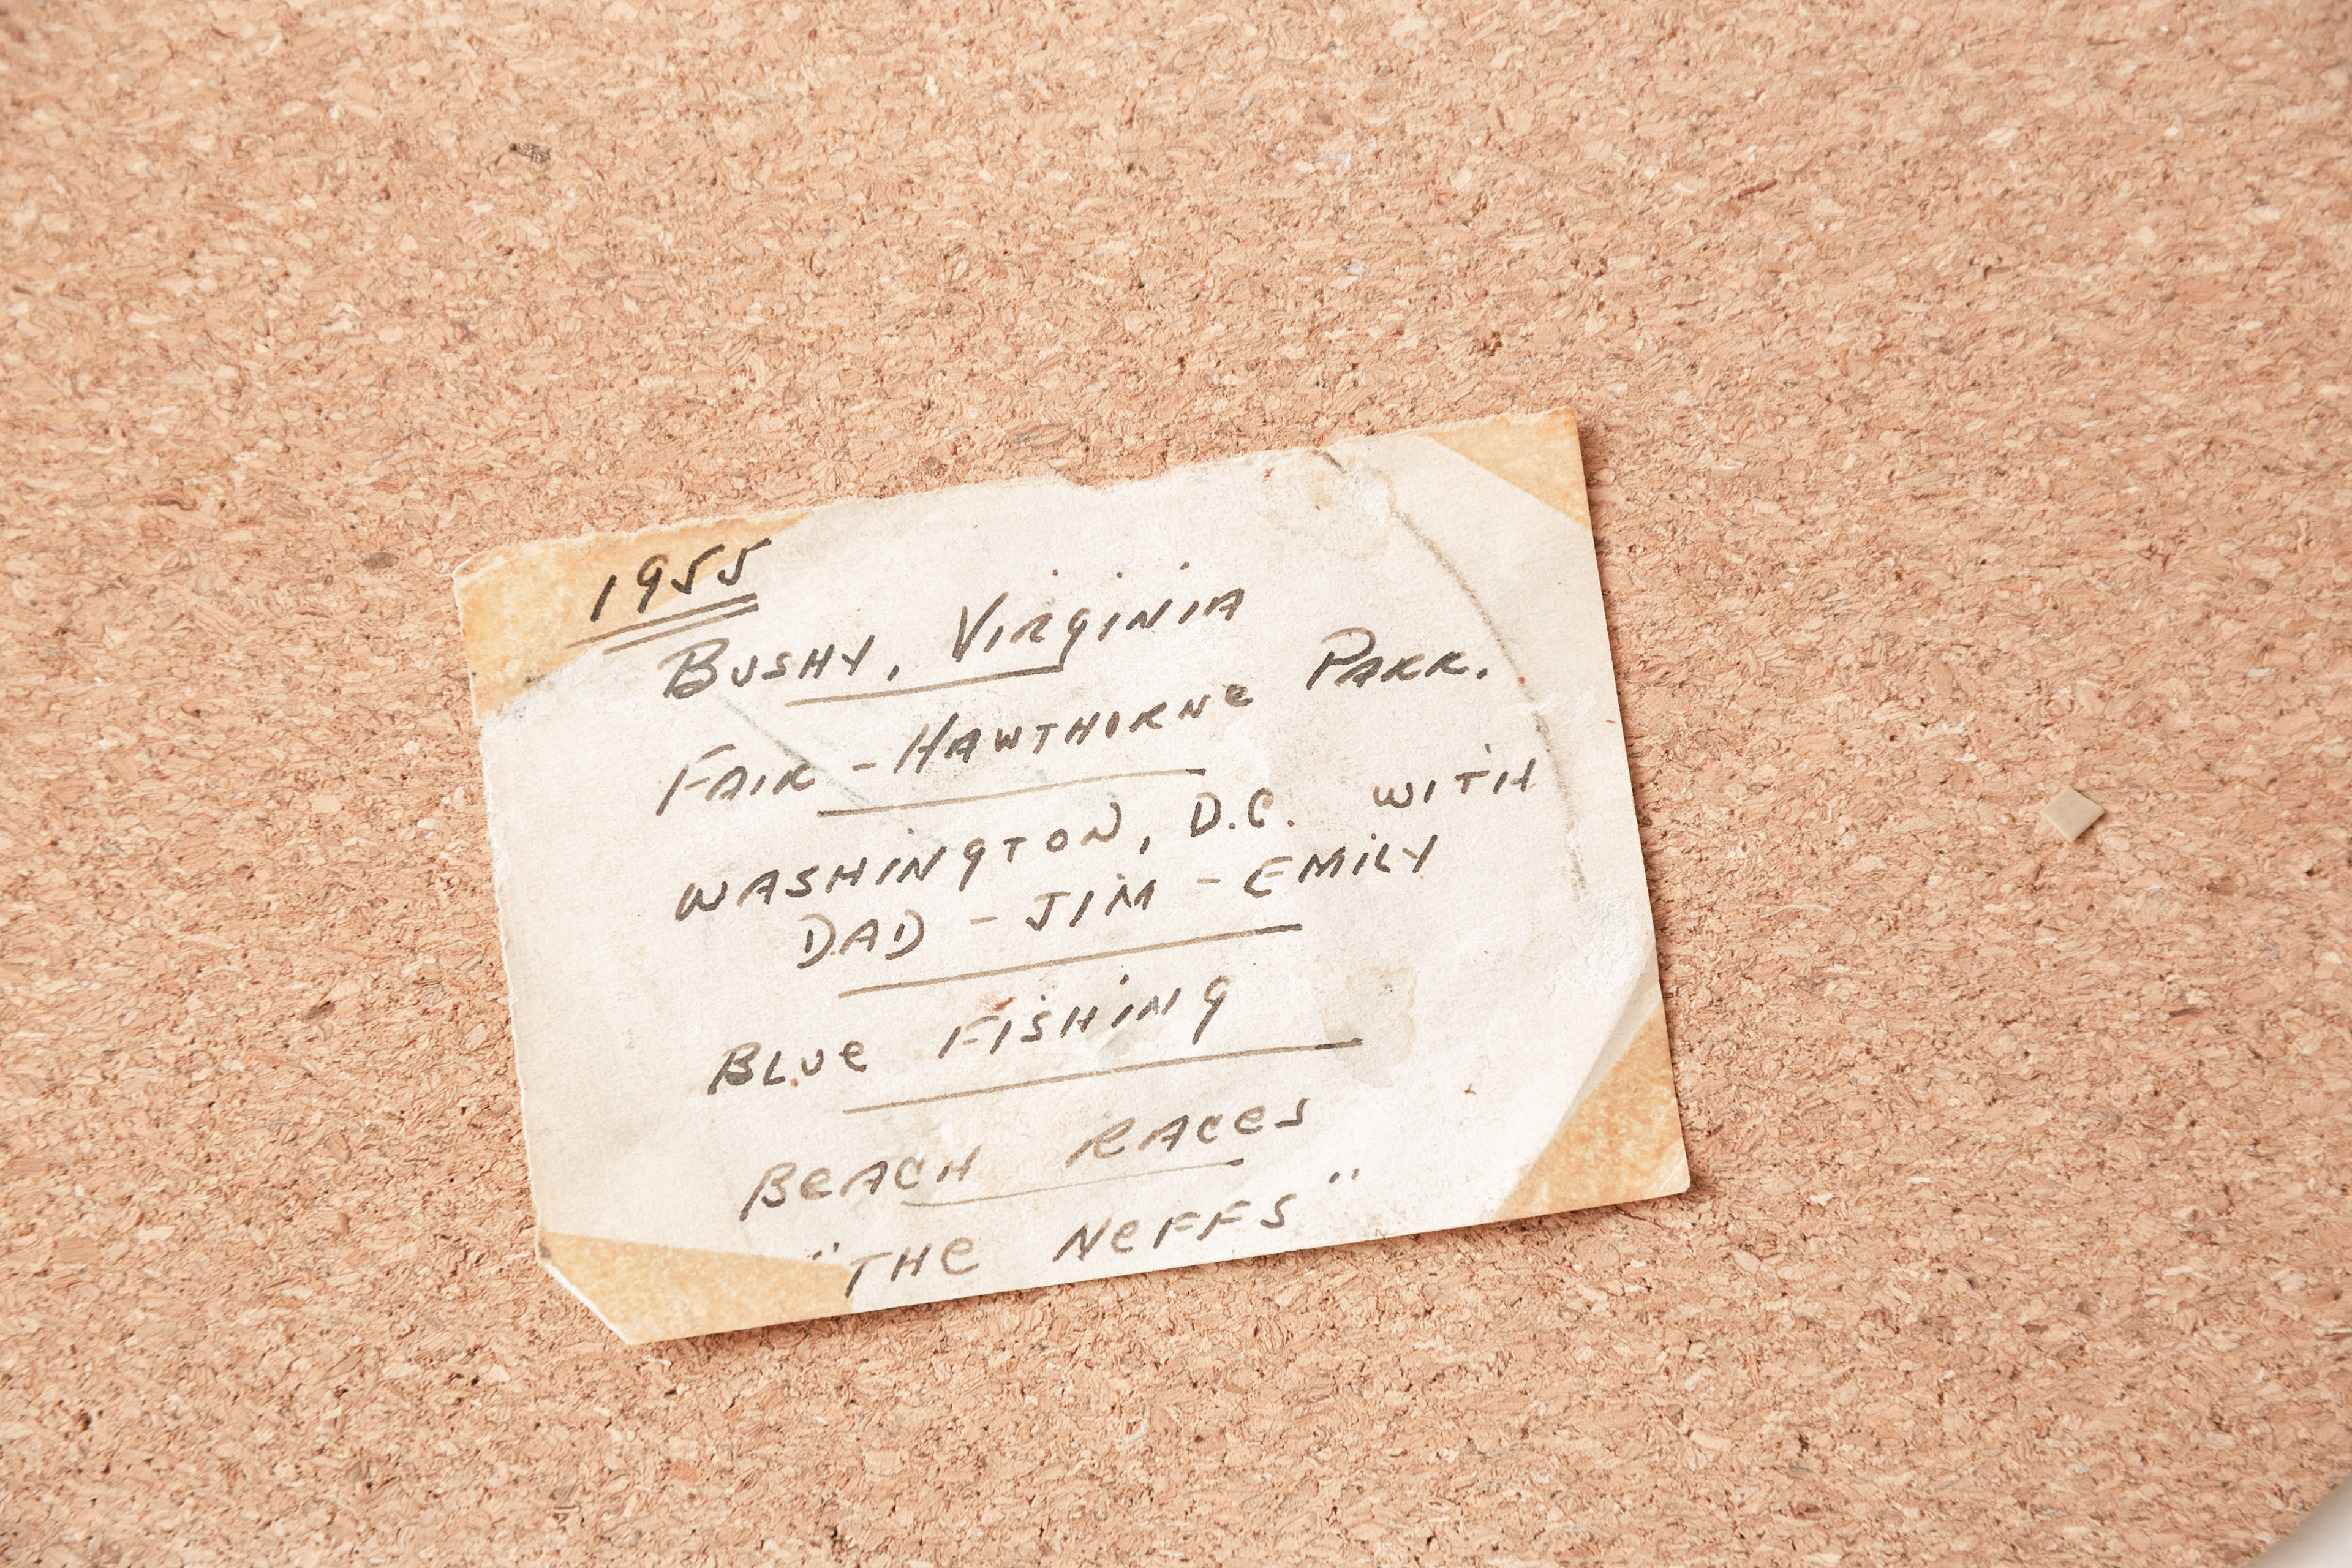 1955
BUSHY, VIRGINIA
FAIR - HAWTHORNE PARK.
WASHINGTON, D.C. WITH
DAD - JIM - EMILY
BLUE FISHING
BEACH RACES
"THE NEFFS"